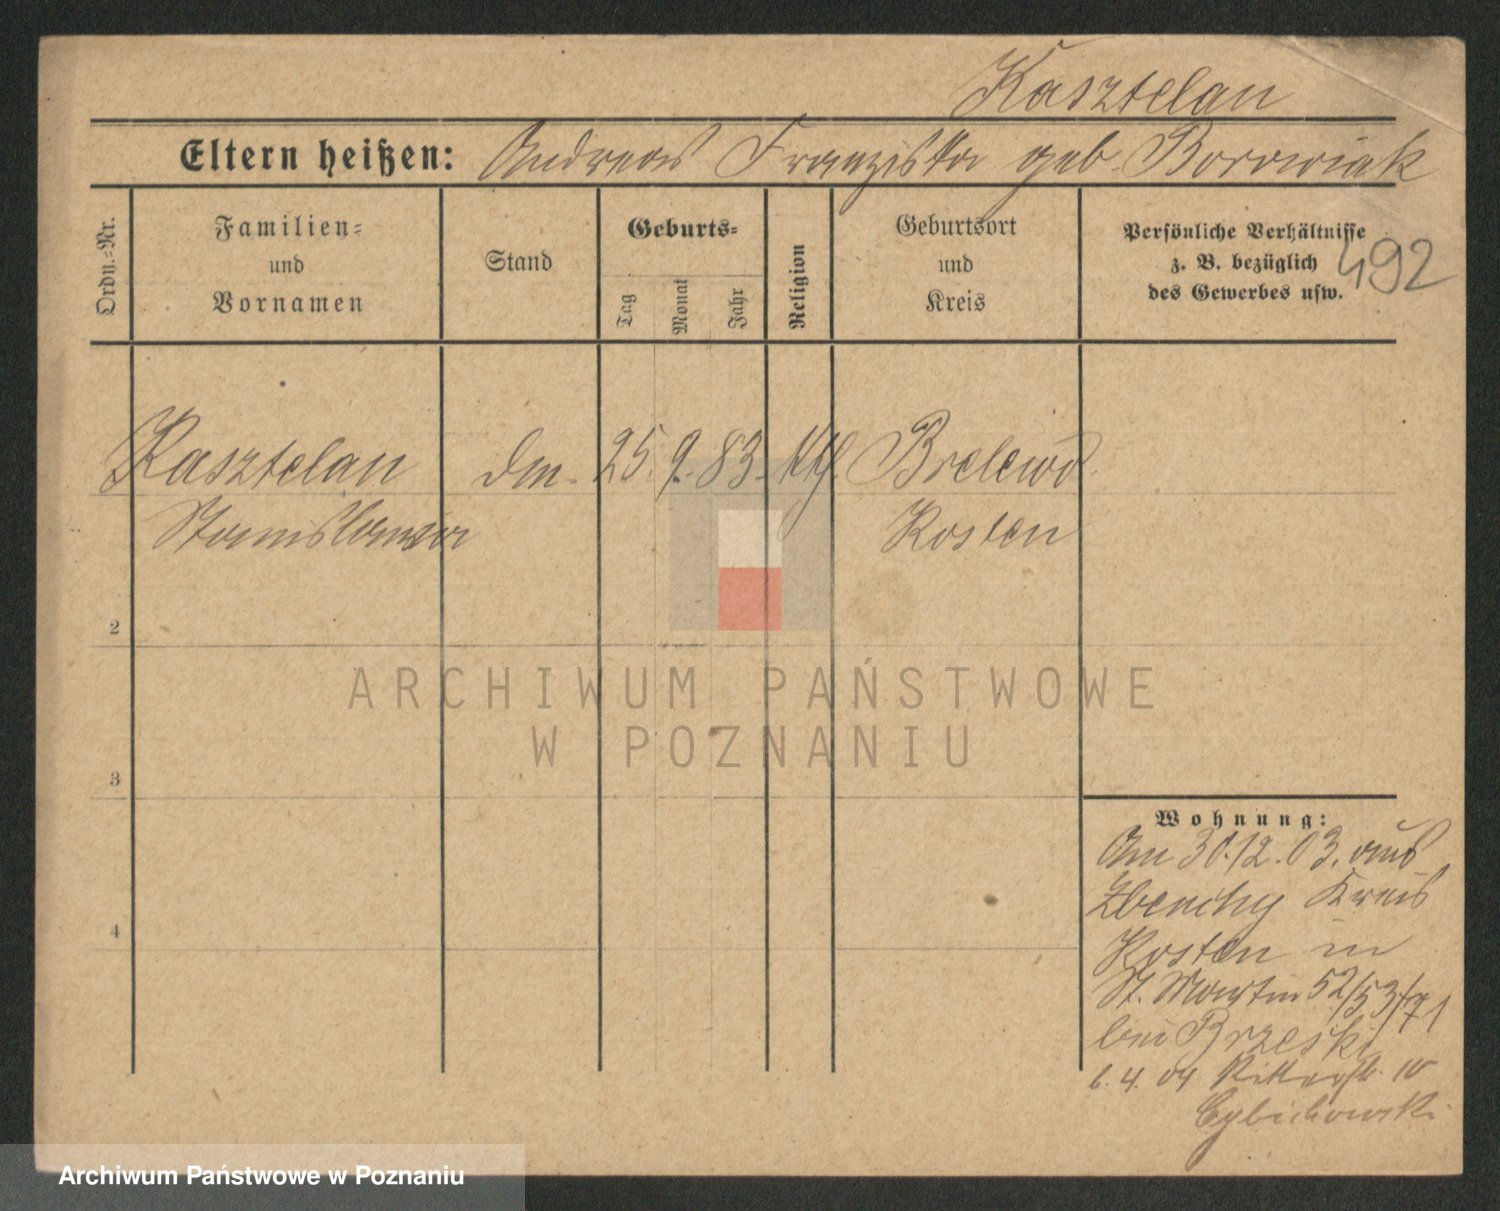 Kasztelan
Eltern heißen: Andreas Franziska geb. Borowiak
Ordn.-Nr.
Familien-
und
Vornamen
Stand
Geburts-
Tag
Monat
Jahr
Religion
Geburtsort
und
Kreis
Persönliche Verhältnisse
z. B. bezüglich
des Gewerbes usw.
492
Kasztelan dm. 25. 9. 83. kth. Brelewo
Stanislawa Kosten
2
3
4
Wohnung:
Am 30.12.03. aus
Zbenchy Kreis
Kosten in
St. Martin 52/53/71
bei Brzeski
6. 4. 04 Ritterstr. 10
Cybichowski
ARCHIWUM PAŃSTWOWE
W POZNANIU
Archiwum Państwowe w Poznaniu